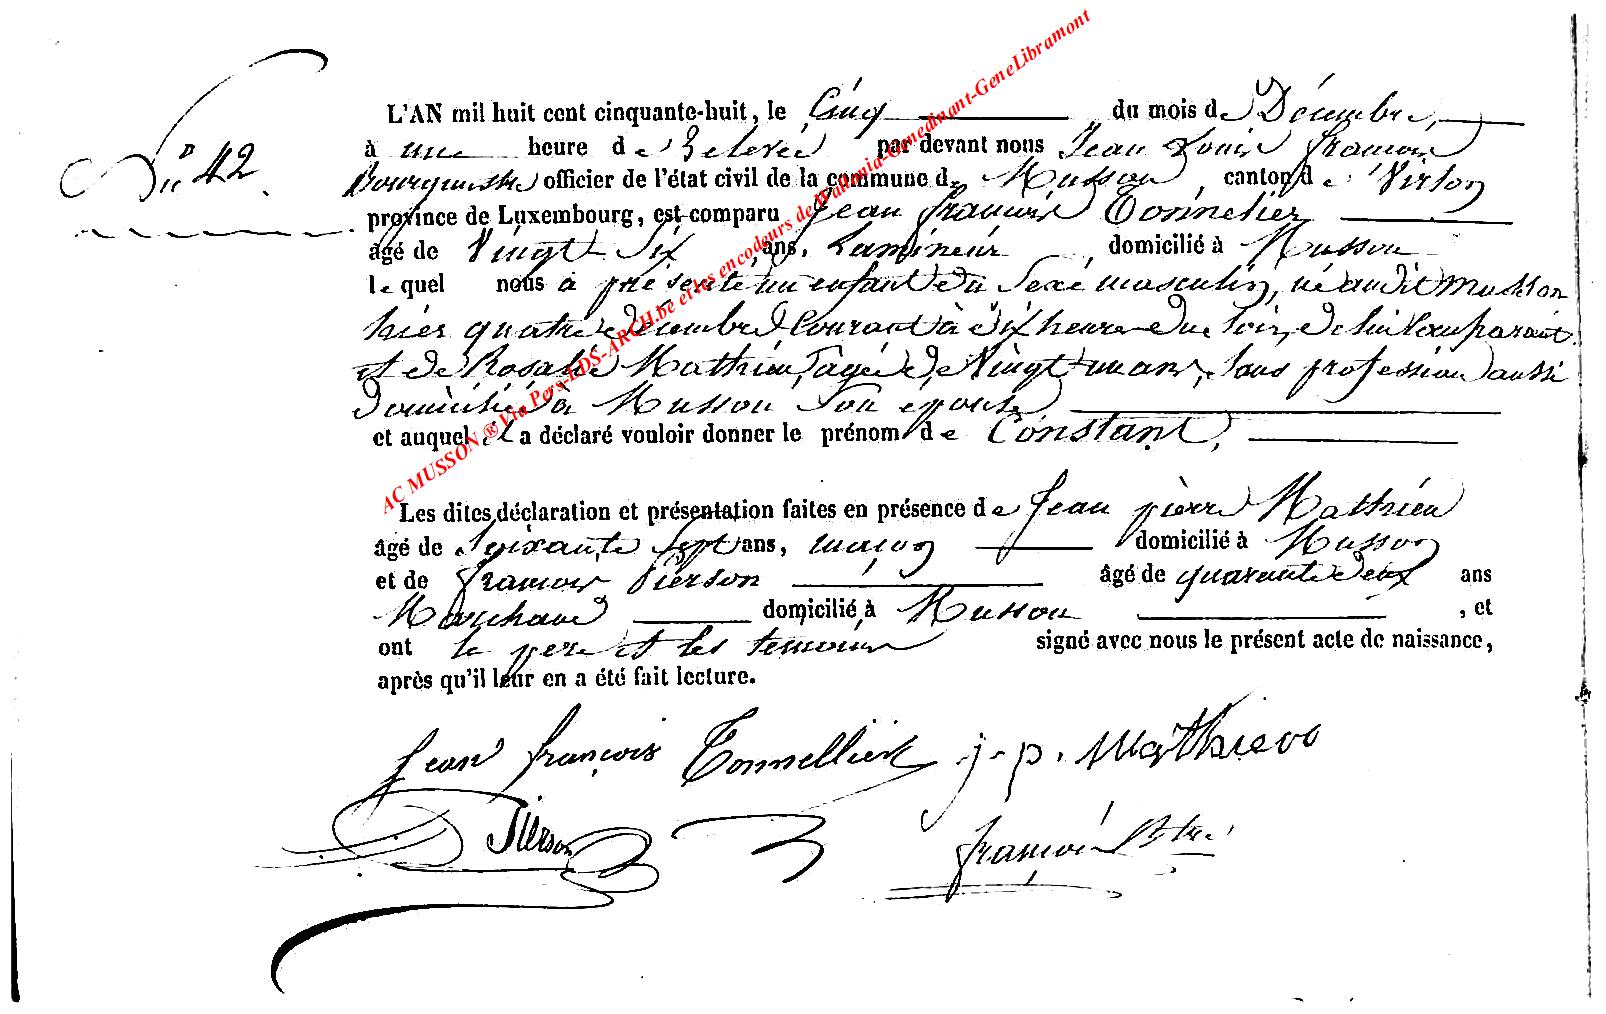 N° 42
L'AN mil huit cent cinquante-huit, le Cinq du mois de Décembre,
à une heure de Relevée par devant nous Jean Louis françois
Bourgmestre officier de l'état civil de la commune de Musson, canton de Virton
province de Luxembourg, est comparu Jean françois Tonnelier
âgé de Vingt Six ans, Lamineur, domicilié à Musson
le quel nous a présenté un enfant du Sexe masculin, né audit Musson
hier quatre décembre Courant à Six heures du Soir, de lui Comparant
et de Rosalie Mathieu, agée de Vingt un ans, Sans profession aussi
domiciliée à Musson Son épouse
et auquel il a déclaré vouloir donner le prénom de Constant,
Les dites déclaration et présentation faites en présence de Jean pierre Mathieu
âgé de Soixante Sept ans, maçon domicilié à Musson
et de françois Pierson âgé de quarante deux ans
Marchand domicilié à Musson, et
ont le pere et les temoins signé avec nous le présent acte de naissance,
après qu'il leur en a été fait lecture.
Jean françois Tonnellier j-p. Mathieu
Pierson françois Btre
AC MUSSON ® Via Pers-LDS-ARCH.be et les encodeurs de Wallonia-Genedinant-GeneLibramont